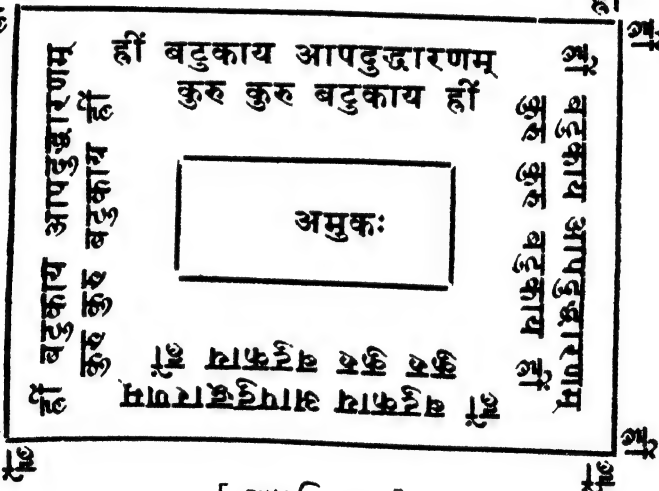 ह्रीं बटुकाय आपदुद्धारणम्
कुरु कुरु बटुकाय ह्रीं
ह्रीं बटुकाय आपदुद्धारणम्
कुरु कुरु बटुकाय ह्रीं
ह्रीं बटुकाय आपदुद्धारणम्
कुरु कुरु बटुकाय ह्रीं
ह्रीं बटुकाय आपदुद्धारणम्
कुरु कुरु बटुकाय ह्रीं
अमुकः
ह्रीं
ह्रीं
ह्रीं
ह्रीं